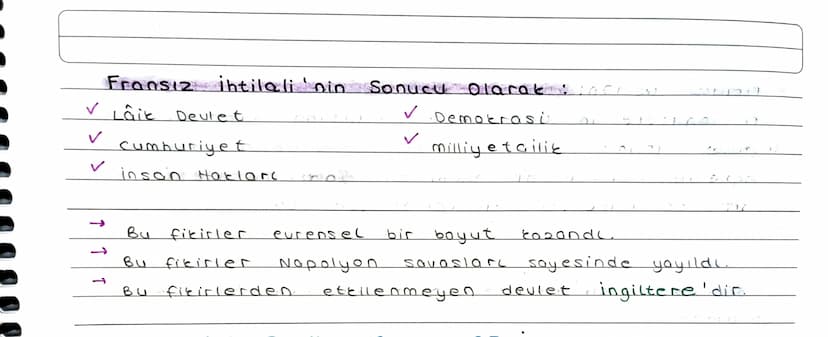 Fransız İhtilali'nin Sonucu Olarak :
✓ Lâik Devlet ✓ Demokrasi
✓ Cumhuriyet ✓ milliyetcilik
✓ insan Hakları
→ Bu fikirler evrensel bir boyut kazandı.
→ Bu fikirler Napolyon savasları sayesinde yayıldı.
→ Bu fikirlerden etkilenmeyen devlet ingiltere'dir.